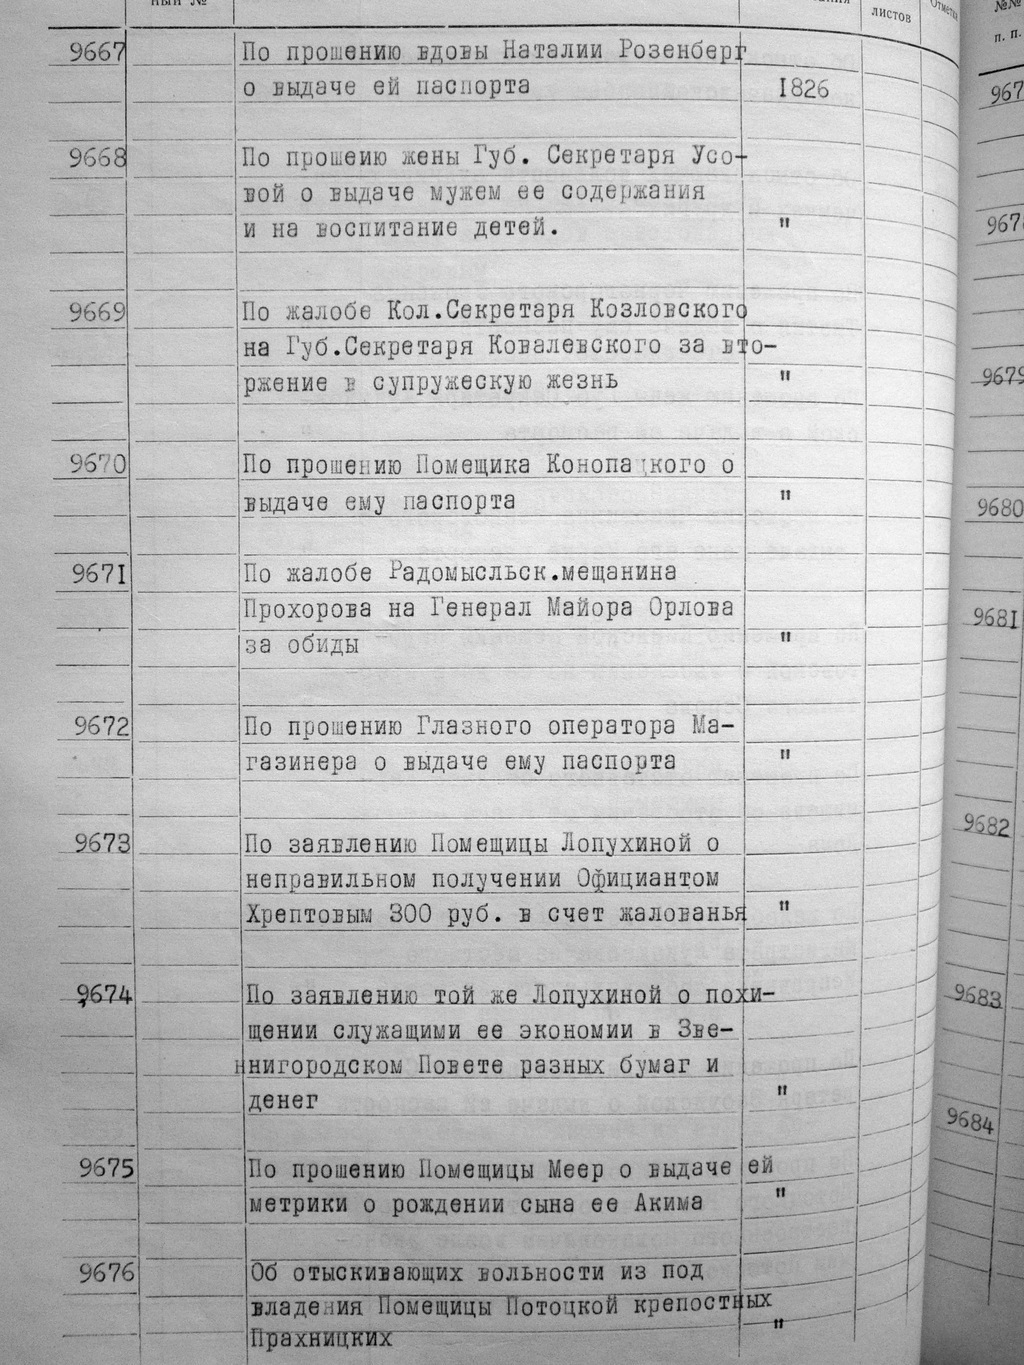 листов
№№
п. п.
9667 По прошению вдовы Наталии Розенберг
о выдаче ей паспорта 1826
9668 По прошеию жены Губ. Секретаря Усо-
вой о выдаче мужем ее содержания
и на воспитание детей. "
9669 По жалобе Кол.Секретаря Козловского
на Губ.Секретаря Ковалевского за вто-
ржение в супружескую жезнь "
9670 По прошению Помещика Конопацкого о
выдаче ему паспорта "
9671 По жалобе Радомысльск.мещанина
Прохорова на Генерал Майора Орлова
за обиды "
9672 По прошению Глазного оператора Ма-
газинера о выдаче ему паспорта "
9673 По заявлению Помещицы Лопухиной о
неправильном получении Официантом
Хрептовым 300 руб. в счет жалованья "
9674 По заявлению той же Лопухиной о похи-
щении служащими ее экономии в Зве-
ннигородском Повете разных бумаг и
денег "
9675 По прошению Помещицы Меер о выдаче ей
метрики о рождении сына ее Акима "
9676 Об отыскивающих вольности из под
владения Помещицы Потоцкой крепостных
Прахницких "
9679
9680
9681
9682
9683
9684